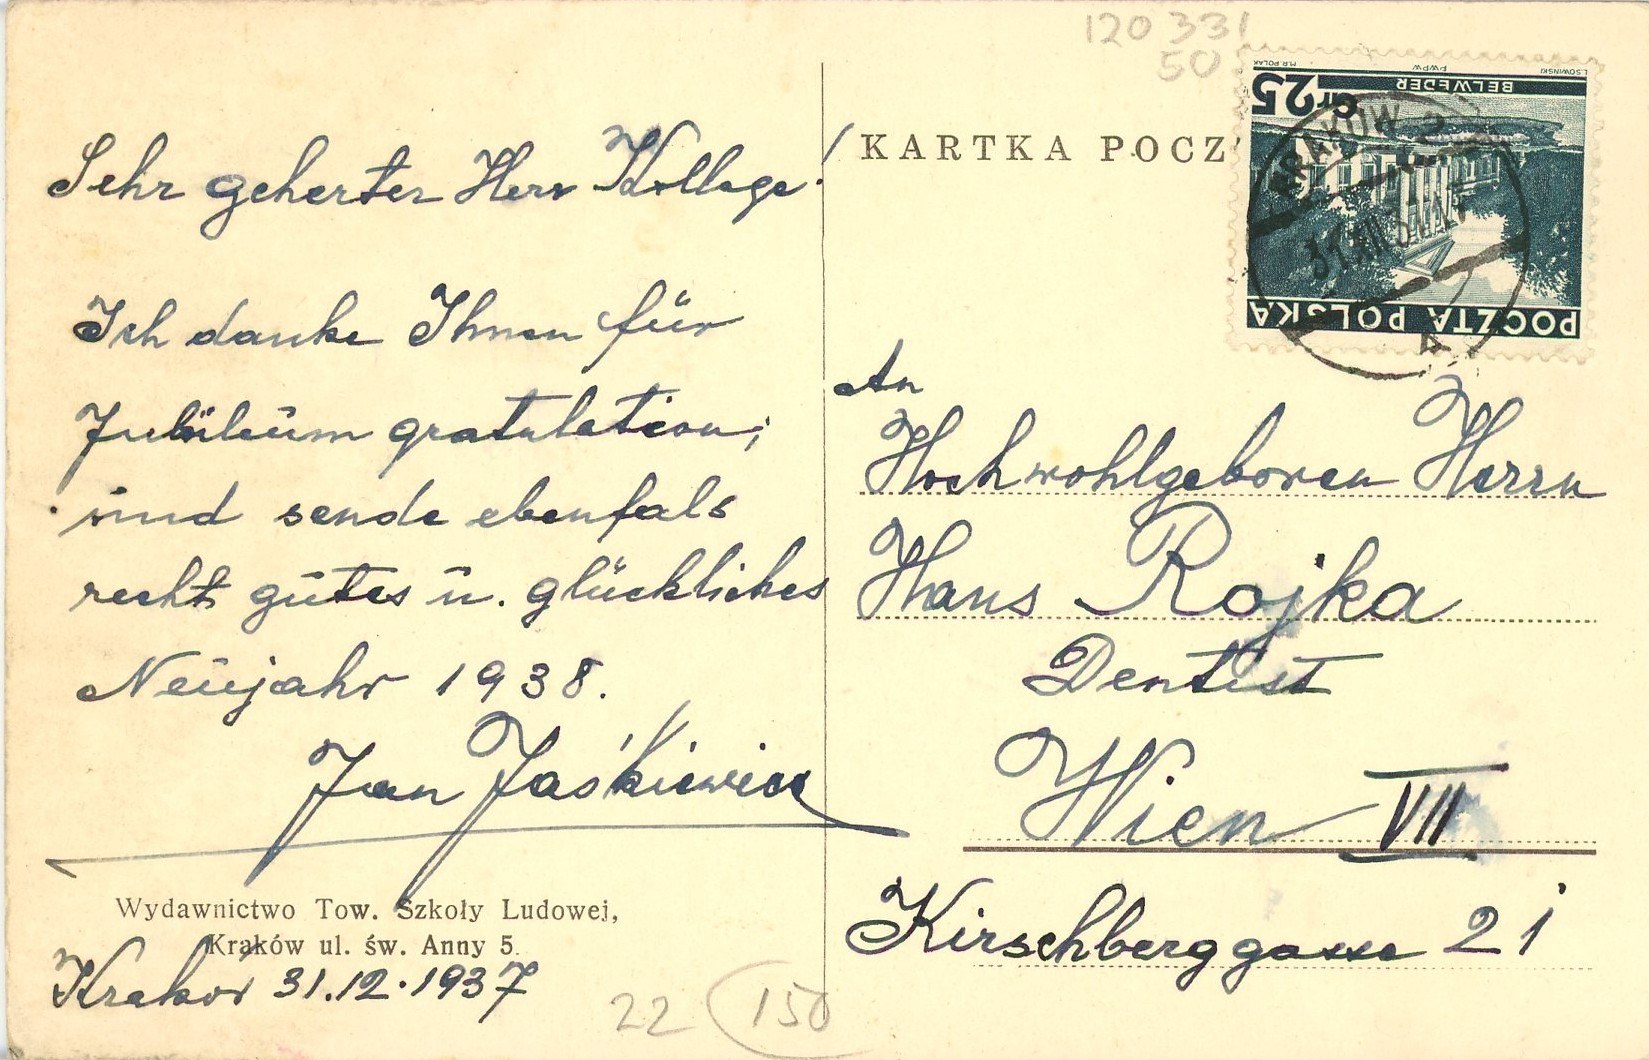 120 331
50
Sehr geherter Herr Kollege!
Ich danke Ihnen für
Jubileum gratulation;
und sende ebenfals
recht gutes u. glückliches
Neujahr 1938.
Jan Jaśkiewicz
Wydawnictwo Tow. Szkoły Ludowej,
Kraków ul. św. Anny 5.
Krakov 31.12.1937
22 150
KARTKA POCZ
L.SOWINSKI PWPW M.R.POLAK
BELWEDER
25 Gr
POCZTA POLSKA
KRAKÓW 2
31 XII 37
An
Hochwohlgeboren Herrn
Hans Rojka
Dentist
Wien VII
Kirschberggasse 21